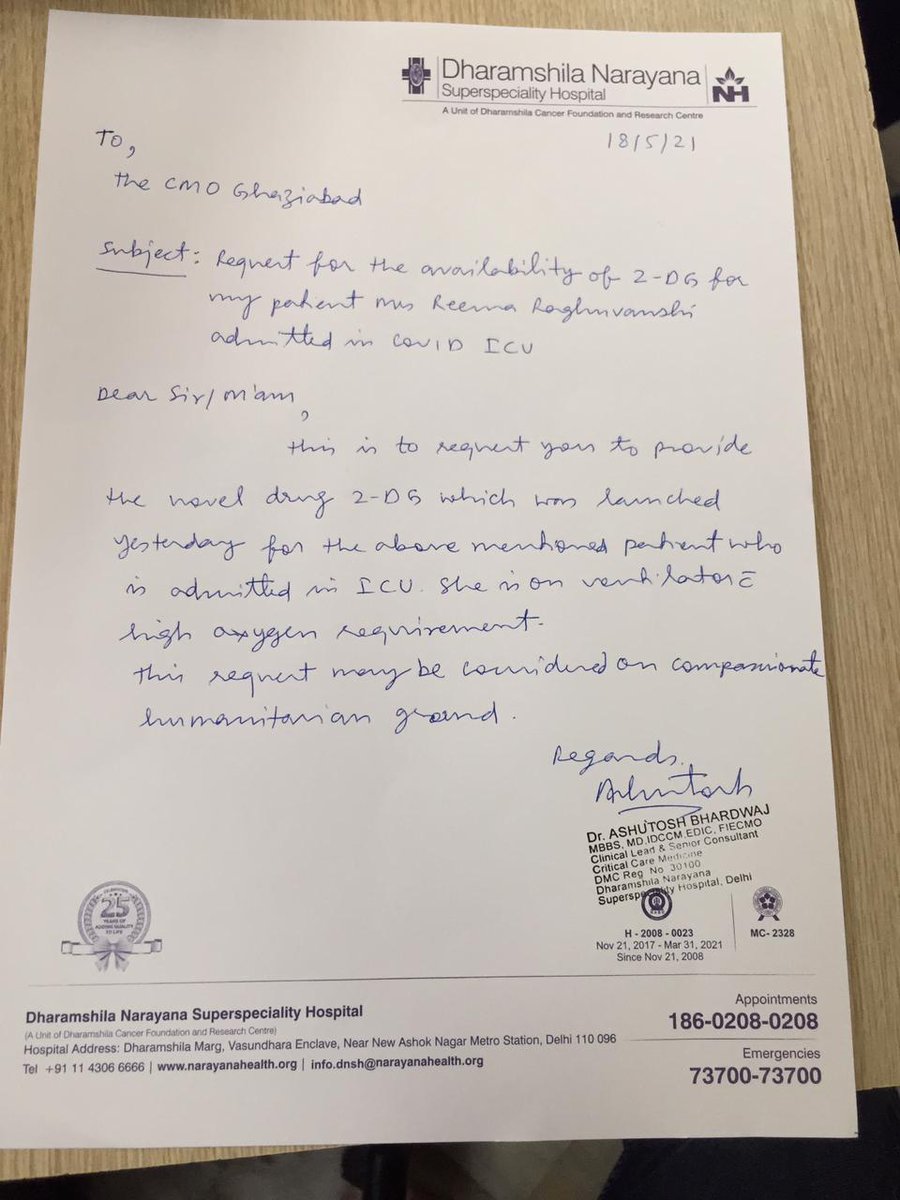 Dharamshila Narayana
Superspeciality Hospital
NH
A Unit of Dharamshila Cancer Foundation and Research Centre
18/5/21
To,
the CMO Ghaziabad
Subject: Request for the availability of 2-DG for
my patient Mrs Reema Raghuvanshi
admitted in COVID ICU
Dear Sir/Mam,
this is to request you to provide
the novel drug 2-DG which was launched
yesterday for the above mentioned patient who
is admitted in ICU. She is on ventilator c̄
high oxygen requirement.
This request may be considered on compassionate
humanitarian ground.
Regards.
Ashutosh
Dr. ASHUTOSH BHARDWAJ
MBBS, MD, IDCCM, EDIC, FIECMO
Clinical Lead & Senior Consultant
Critical Care Medicine
DMC Reg No 30100
Dharamshila Narayana
Superspeciality Hospital, Delhi
25
YEARS OF
ADDING QUALITY
TO LIFE
H - 2008 - 0023
Nov 21, 2017 - Mar 31, 2021
Since Nov 21, 2008
MC- 2328
Dharamshila Narayana Superspeciality Hospital
(A Unit of Dharamshila Cancer Foundation and Research Centre)
Hospital Address: Dharamshila Marg, Vasundhara Enclave, Near New Ashok Nagar Metro Station, Delhi 110 096
Tel +91 11 4306 6666 | www.narayanahealth.org | info.dnsh@narayanahealth.org
Appointments
186-0208-0208
Emergencies
73700-73700